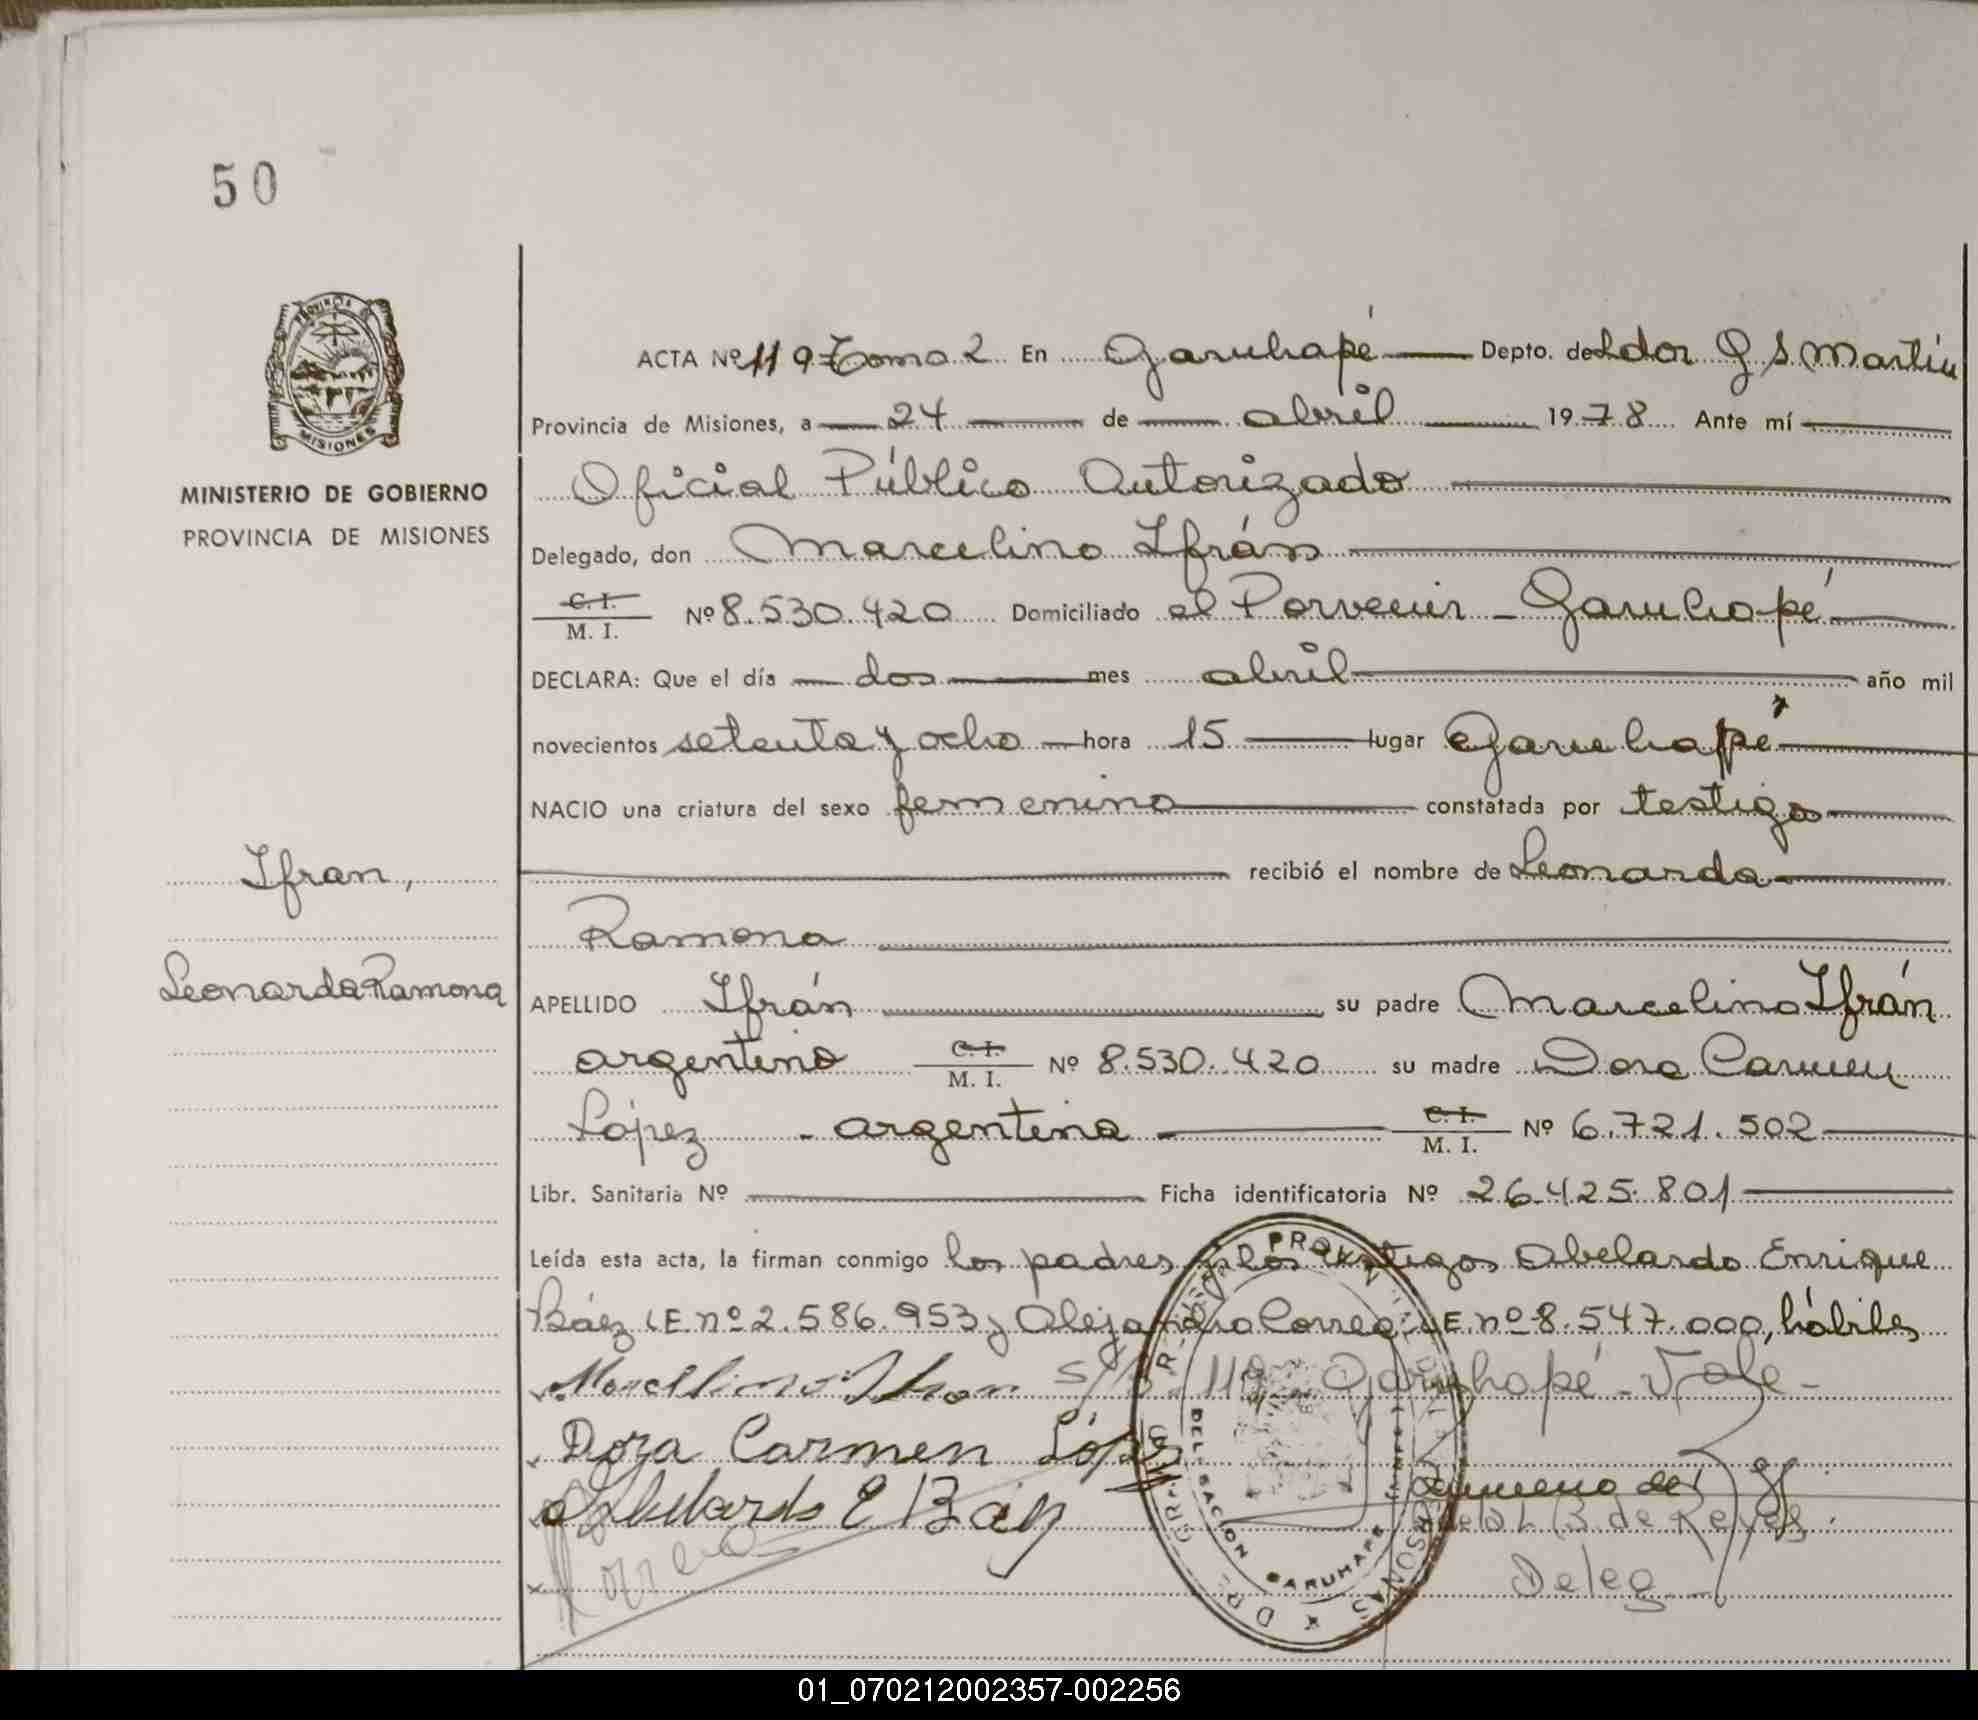 50
PROVINCIA DE
MISIONES
MINISTERIO DE GOBIERNO
PROVINCIA DE MISIONES
ACTA Nº 119 Tomo 2 En Garuhapé Depto. de Ldor G S. Martín
Provincia de Misiones, a 24 de abril 1978 Ante mí
Oficial Público Autorizado
Delegado, don Marcelino Ifrán
C. I.
M. I. Nº 8.530.420 Domiciliado el Porvenir - Garuhapé
DECLARA: Que el día dos mes abril año mil
novecientos setenta y ocho hora 15 lugar Garuhapé
NACIO una criatura del sexo femenino constatada por testigos
recibió el nombre de Leonarda
Ramona
Ifran,
Leonarda Ramona
APELLIDO Ifrán su padre Marcelino Ifrán
argentino C. I. M. I. Nº 8.530.420 su madre Dora Carmen
López - argentina C. I. M. I. Nº 6.721.502
Libr. Sanitaria Nº Ficha identificatoria Nº 26.425.801
Leída esta acta, la firman conmigo los padres y los testigos Abelardo Enrique
Báez LE nº 2.586.953 y Alejandro Correa LE nº 8.547.000, hábiles
S/B. 119 Garuhapé - Vale -
Dora Carmen López
Abelardo E Báez
Correa
B. de Reyes
Deleg
DELEGACION GARUHAPE
01_070212002357-002256